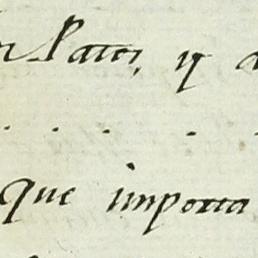 Patos, y
. . . . .
que importa